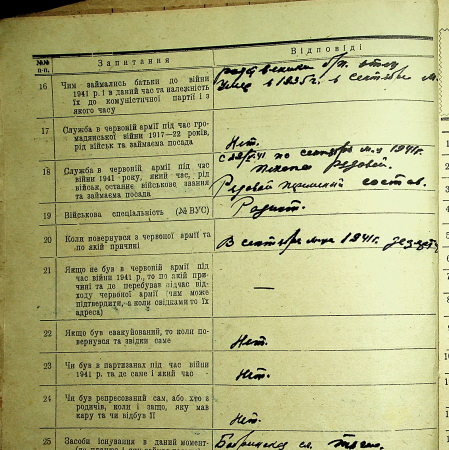 №№ п.п.
Запитання
Відповіді
16
Чим займались батьки до війни
1941 р. і в даний час та належність
їх до комуністичної партії і з
якого часу
в 1935 г. в сентябре м.
17
Служба в червоній армії під час гро-
мадянської війни 1917—22 років,
рід військ та займаєма посада
Нет.
18
Служба в червоній армії під час
війни 1941 року, який час, рід
військ, останнє військове звання
та займаєма посада
по сентябрь м-ц 1941г.
рядовой.
Рядовой состав.
19
Військова спеціальність (№ ВУС)
Радист.
20
Коли повернувся з червоної армії та
по якій причині
В сентябре м-це 1941г.
21
Якщо не був в червоній армії під
час війни 1941 р., то по якій при-
чині та де перебував підчас від-
ходу червоної армії (чим може
підтвердити, а коли свідками то їх
адреса)
—
22
Якщо був евакуйований, то коли по-
вернувся та звідки саме
Нет.
23
Чи був в партизанах під час війни
1941 р. та де саме і який час
Нет.
24
Чи був репресований сам, або хто з
родичів, коли і защо, яку мав
кару та чи відбув її
Нет.
25
Засоби існування в даний момент